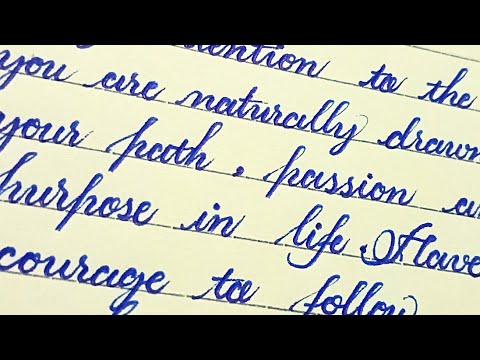 tention to the
you are naturally drawn
your path, passion
purpose in life. Have
courage to follow